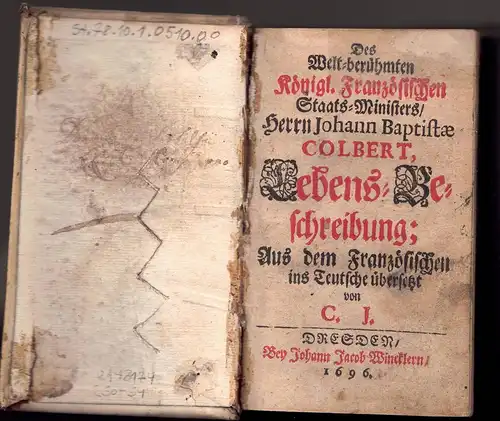 54.78.10.1.0510.00
Des
Welt-berühmten
Königl. Französischen
Staats-Ministers/
Herrn Johann Baptistæ
COLBERT,
Lebens-Be-
schreibung;
Aus dem Französischen
ins Teutsche übersetzt
von
C. J.
DRESDEN/
Bey Johann Jacob Wincklern/
1696.